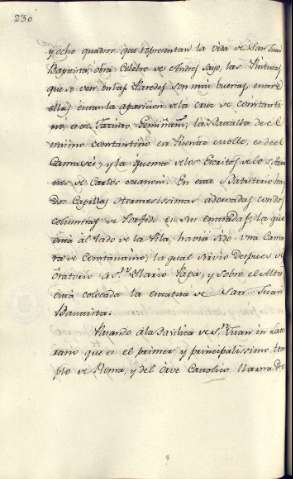 230
y ocho quadros que representan la vida de San Juan
Bautista, obra celebre de Andres Sagi, las Pinturas
que se ven en las Paredes son mui buenas, entre
ellas, estan la aparicion de la Cruz de Constanti
no, es de Geminiani, la Batalla de el
mismo Constantino en Puente Molle, es de el
Camassei, y la quema de los Escritos de los
de Carlos Maratti. En este Batisterio hai
dos Capillas hermosissimas adornadas con dos
columnas de Porfido en su entrada; la que
está al lado de la Pila, havia sido una Cama
ra de Constantino, la qual sirvió despues de
Oratorio a Sn. Hilario Papa, y sobre el Altar
está colocada la estatua de San Juan
Bautista.
Pasando á la Basilica de Sn. Juan in Late
rano que es el primer y principalissimo tem
plo de Roma, y del Orbe Catolico llamado